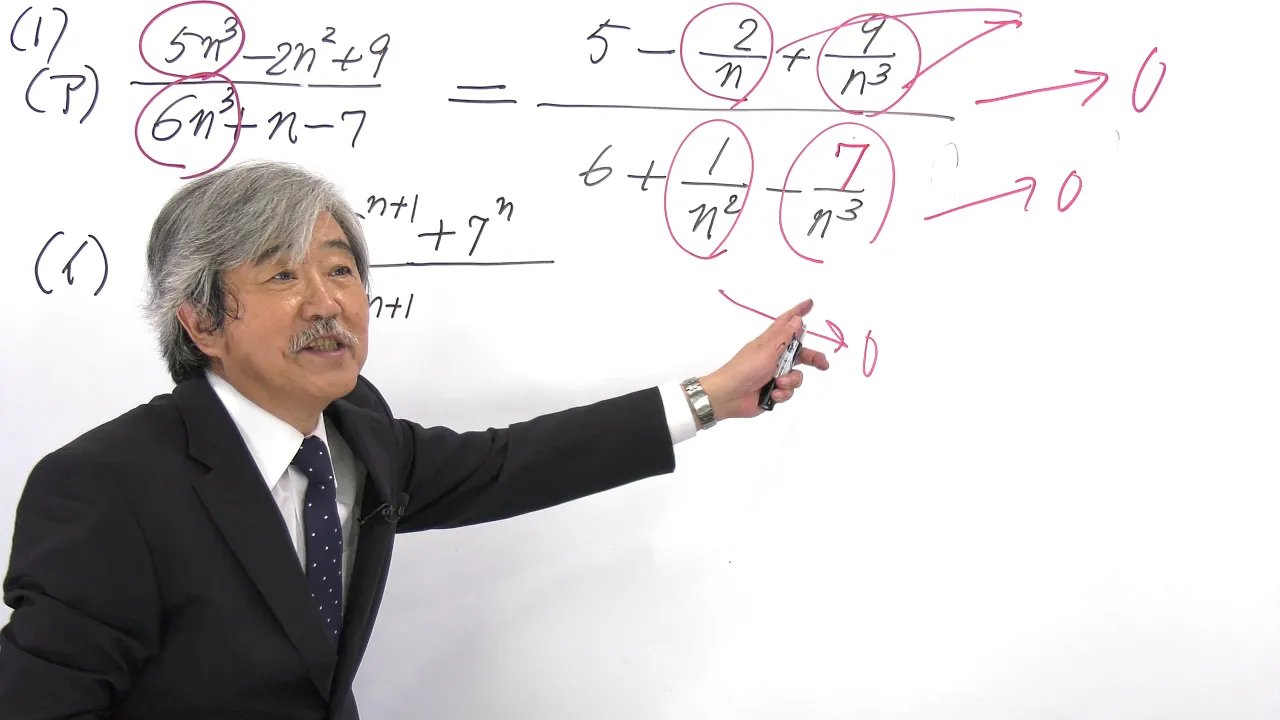 (1)
(ア) 5n³-2n²+9 / 6n³+n-7 = 5 - 2/n + 9/n³ / 6 + 1/n² - 7/n³ → 0
→ 0
(イ) n+1 + 7ⁿ
n+1
→ 0